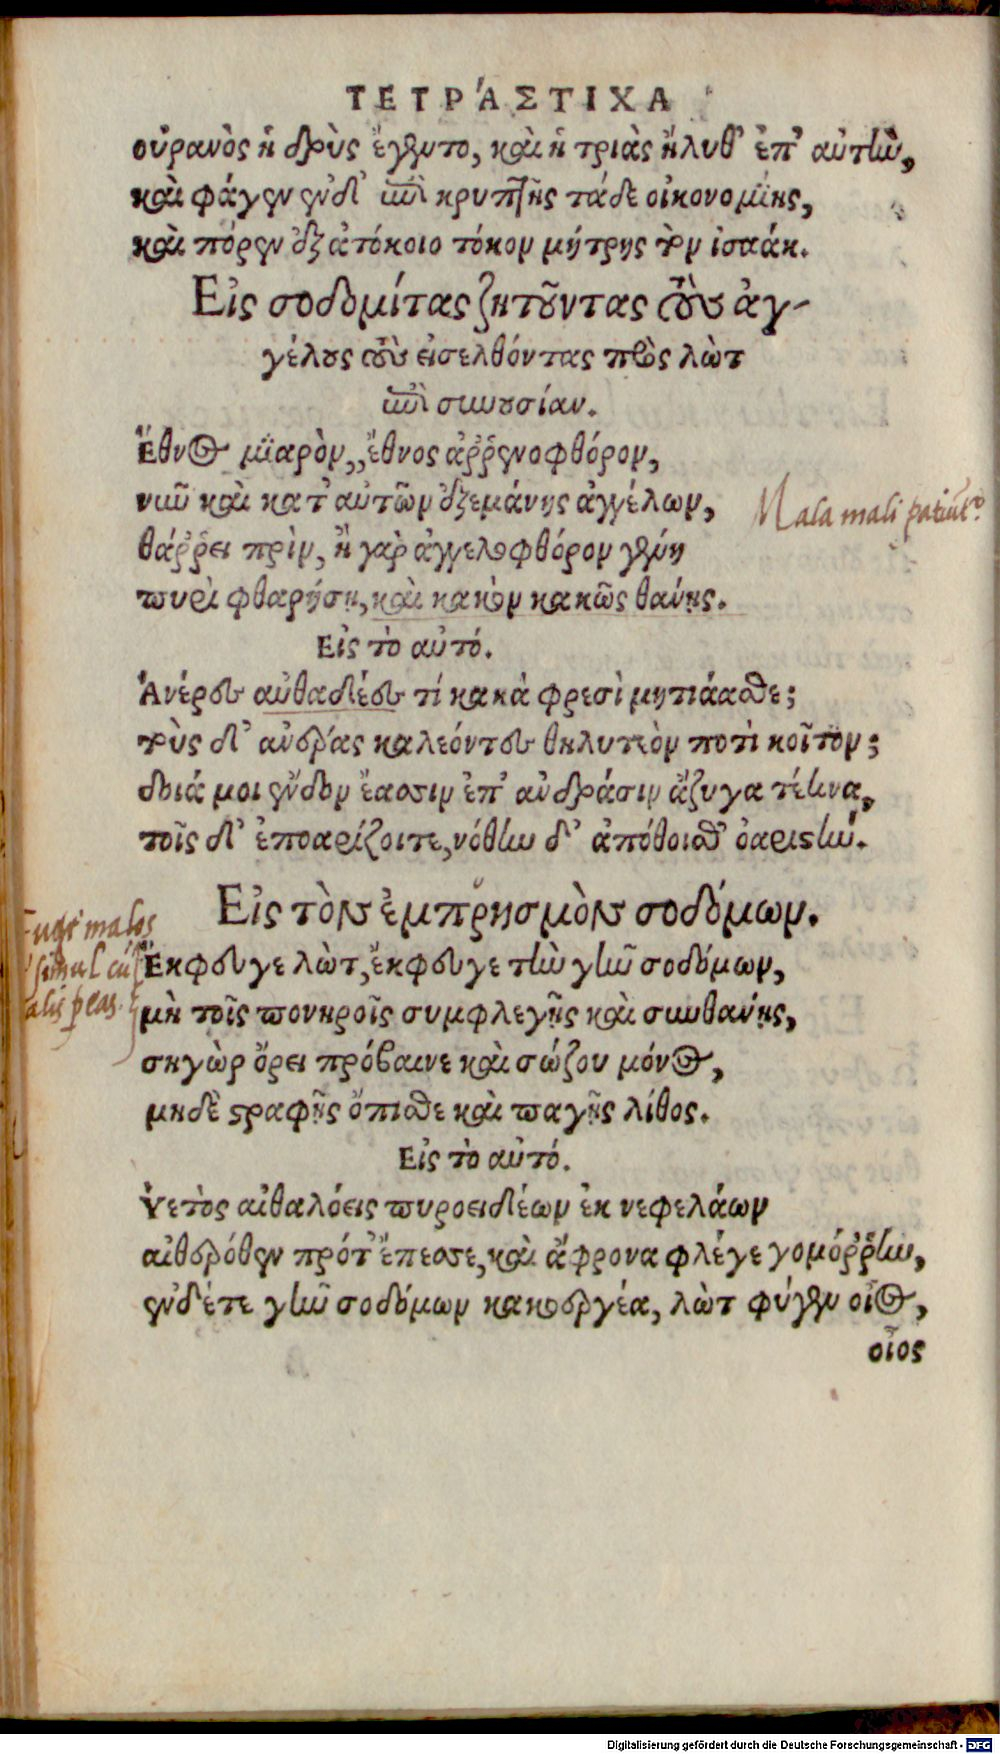 ΤΕΤΡΆΣΤΙΧΑ
οὐρανὸς ἡ δρῦς ἔγεντο, καὶ ἡ τριὰς ἤλυθ' ἐπ' αὐτὴν,
καὶ φάγεν ἐνδ' ἐπὶ κρυπτῆς τάδε οἰκονομίης,
καὶ πόρεν ἐξ ἀτόκοιο τόκον μήτρης τὸν ἰσαάκ.
Εἰς σοδομίτας ζητοῦντας τοὺς ἀγ-
γέλους τοὺς εἰσελθόντας πρὸς λὼτ
ἐπὶ συνουσίαν.
Ἔθνος μϊαρὸν, ἔθνος ἀῤῥενοφθόρον,
νῦν καὶ κατ' αὐτῶν ἐξεμάνης ἀγγέλων,
θάῤῥει πρὶν, ἢ γὰρ ἀγγελοφθόρον γένῃ
πυρὶ φθαρήσῃ, καὶ κακὸν κακῶς θάνῃς.
Εἰς τὸ αὐτό.
Ἀνέρες αὐθαδέες τί κακὰ φρεσὶ μητιάασθε;
τοὺς δ' ἄνδρας καλέοντες θηλυτιὸν ποτὶ κοῖτον;
δοιά μοι ἔνδον ἔασιν ἐπ' ἀνδράσιν ἄζυγα τέκνα,
τοῖς δ' ἐποαρίζοιτε, νόθην δ' ἀπόθοισθ' ὀαριστήν.
Εἰς τὸν ἐμπρησμὸν σοδόμων.
Ἔκφευγε λὼτ, ἔκφευγε τὴν γῆν σοδόμων,
μὴ τοῖς πονηροῖς συμφλεγῇς καὶ συνθάνῃς,
σηγὼρ ὄρει πρόβαινε καὶ σώζου μόνος,
μηδὲ στραφῇς ὄπισθε καὶ παγῇς λίθος.
Εἰς τὸ αὐτό.
Ὑετὸς αἰθαλόεις πυροειδέων ἐκ νεφελάων
αἰθρόθεν πρότ' ἔπεσε, καὶ ἄφρονα φλέγε γομόῤῥην,
ἐνδέτε γῆν σοδόμων κακοεργέα, λὼτ φύγεν οἶος,
οἶος
Mala mali patiunt
Fuge malos
simul cū
malis peas.